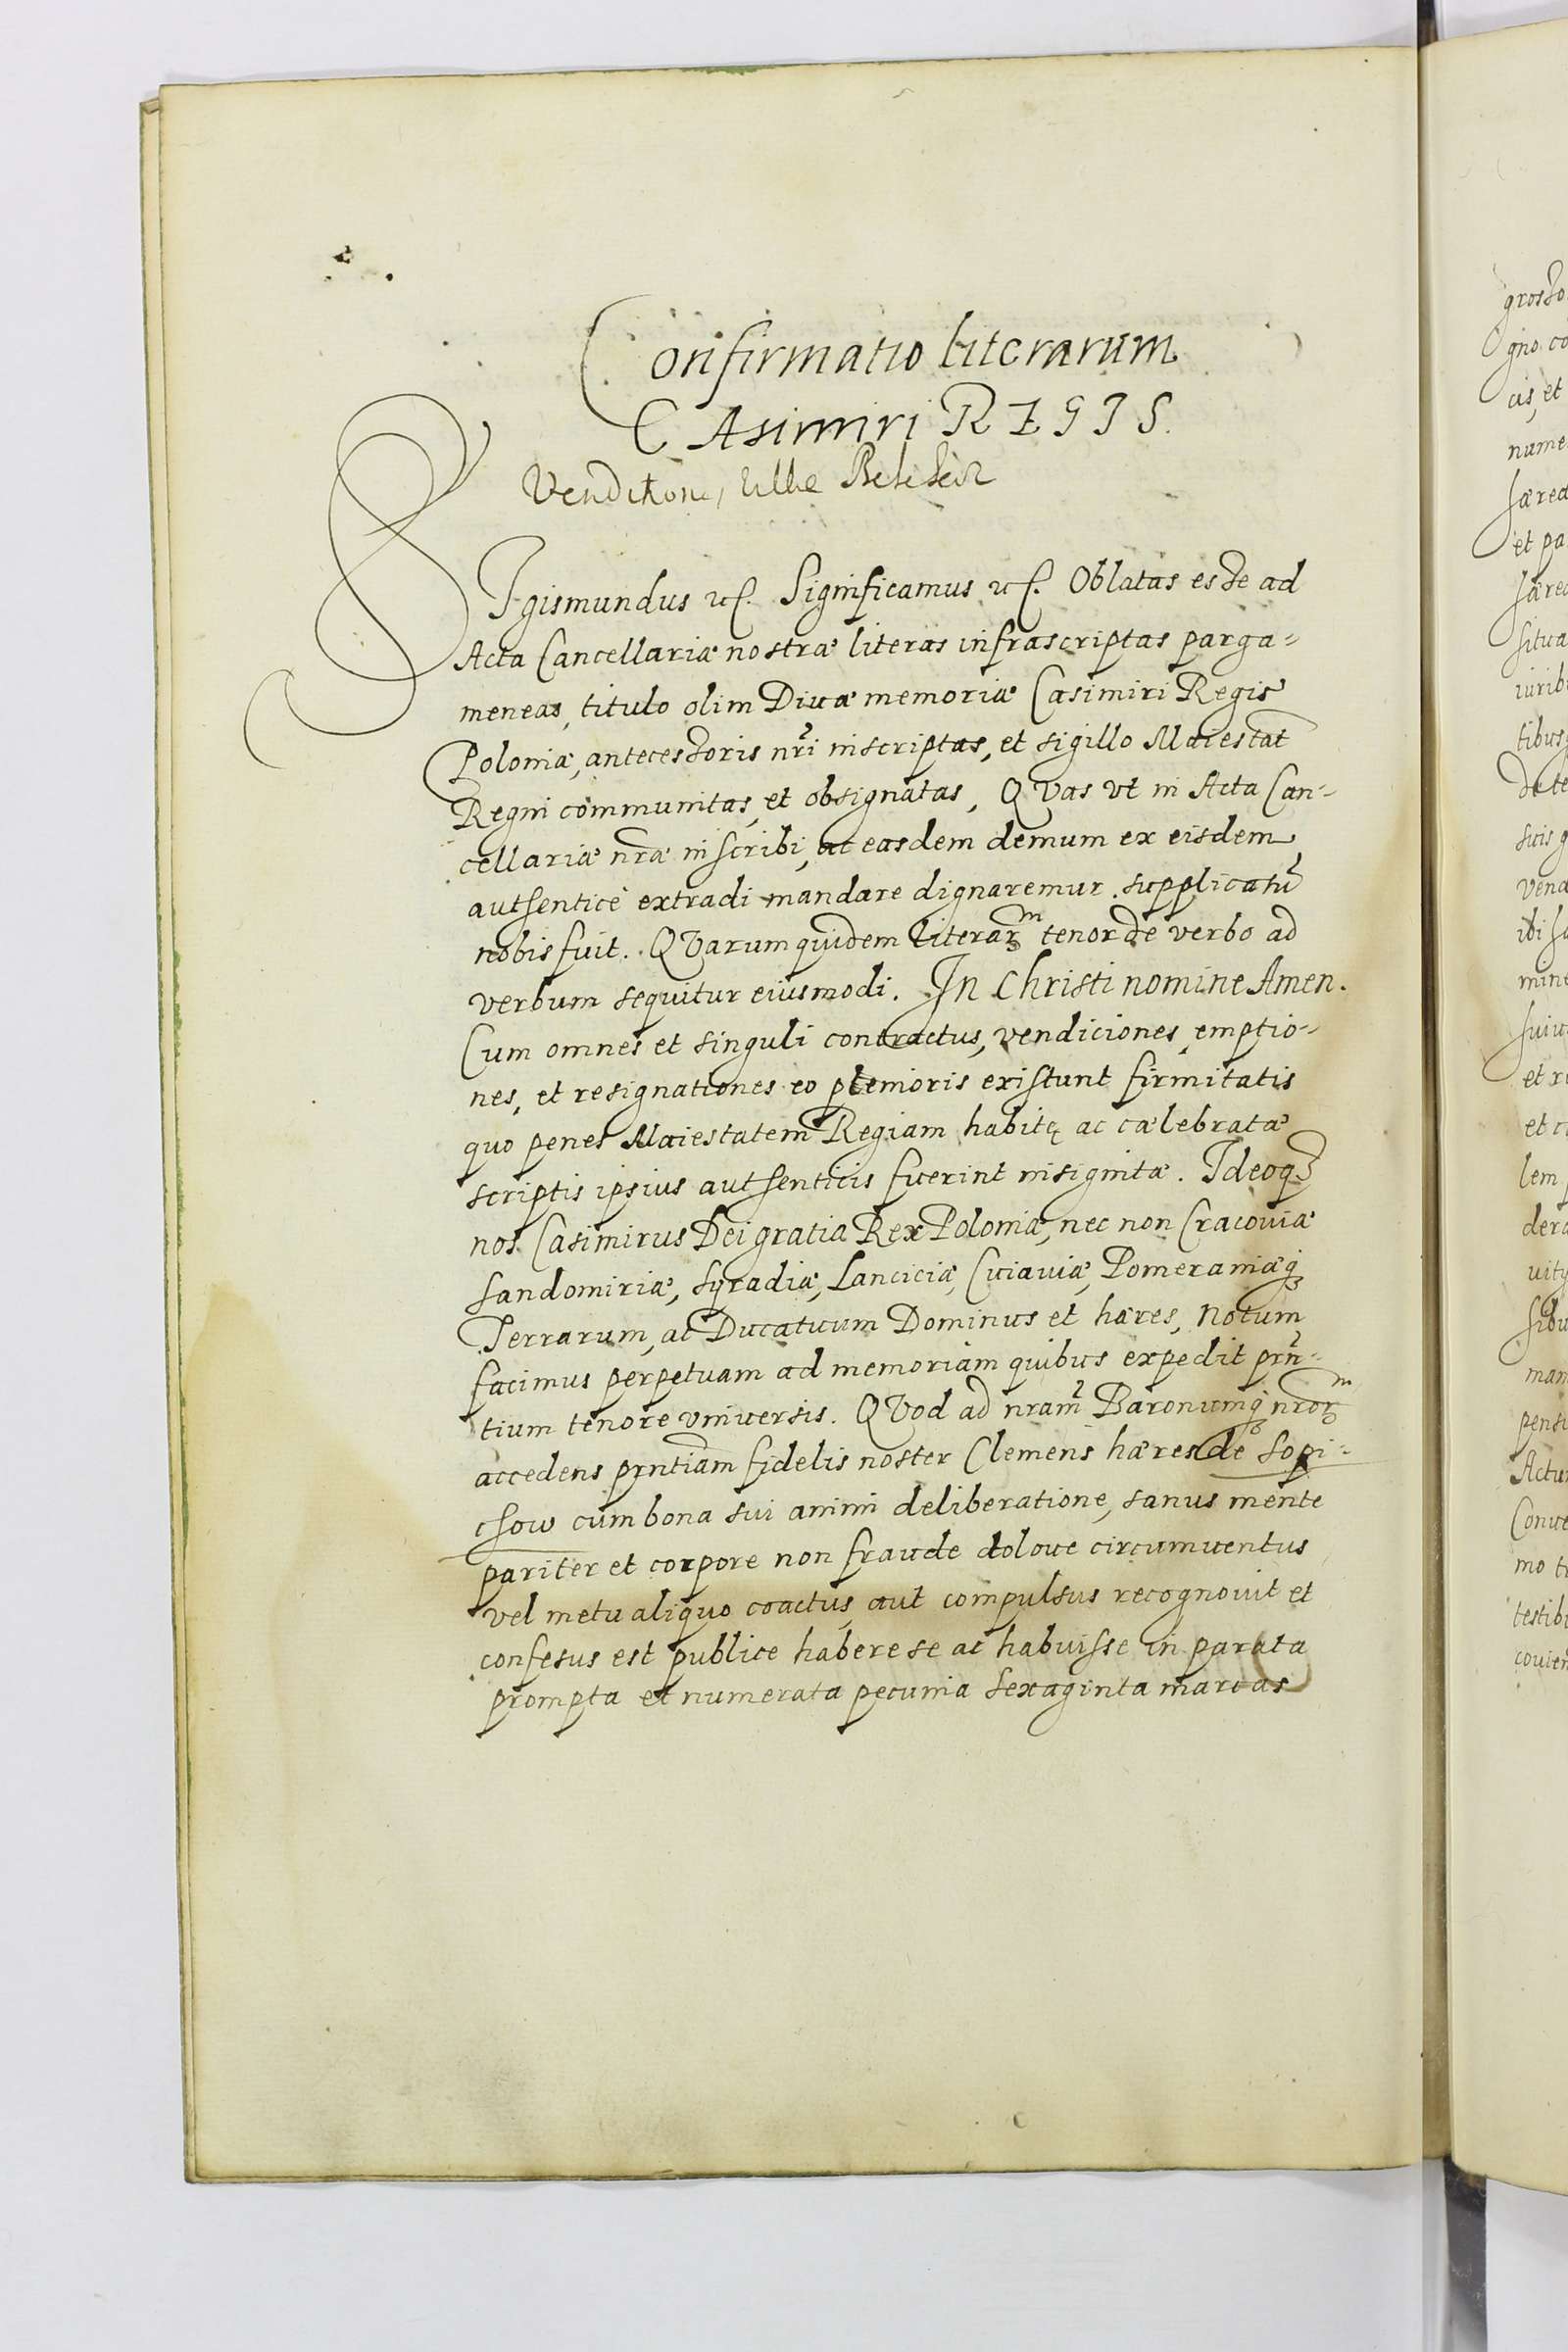 Confirmatio literarum
CAsimiri REGIS.
Venditione, Ville
SIgismundus etc. Significamus etc. Oblatas esse ad
Acta Cancellariæ nostræ literas infrascriptas parga-
meneas, titulo olim Diuæ memoriæ Casimiri Regis
Poloniæ, antecessoris nri inscriptas, et sigillo Maiestat
Regni communitas, et obsignatas, QVas vt in Acta Can-
cellariæ nræ inscribi, ac easdem demum ex eisdem
authenticè extradi mandare dignaremur. supplicatu
nobis fuit. QVarum quidem literarm tenor de verbo ad
verbum sequitur eiusmodi. In Christi nomine Amen.
Cum omnes et singuli contractus, vendiciones, emptio-
nes, et resignationes eo plenioris existunt firmitatis
quo penes Maiestatem Regiam habitę ac cælebratæ
scriptis ipsius authenticis fuerint insignitæ. Ideoq3
nos Casimirus Dei gratia Rex Poloniæ, nec non Cracouiæ
Sandomiriæ, Syradiæ, Lanciciæ, Cuiauiæ, Pomeraniæq3
Terrarum, ac Ducatuum Dominus et hæres, Notum
facimus perpetuam ad memoriam quibus expedit prn-
tium tenore vniuersis. QVod ad nram Baronumq3 nrorm
accedens prntiam fidelis noster Clemens hæres de Sopi-
chow cum bona sui animi deliberatione, sanus mente
pariter et corpore non fraude doloue circumuentus
vel metu aliquo coactus, aut compulsus recognouit et
confesus est publice habere se ac habuisse in parata
prompta et numerata pecunia sexaginta marcas
grosso
gno co
cis, et
nume
hæred
et pa
hæred
situa
iurib
tibus
de te
sicis q
vend
ibi
mine
suiu
et r
et c
lem p
dera
uity
sibu
man
pensi
Actu
Conue
mo t
testib
couien